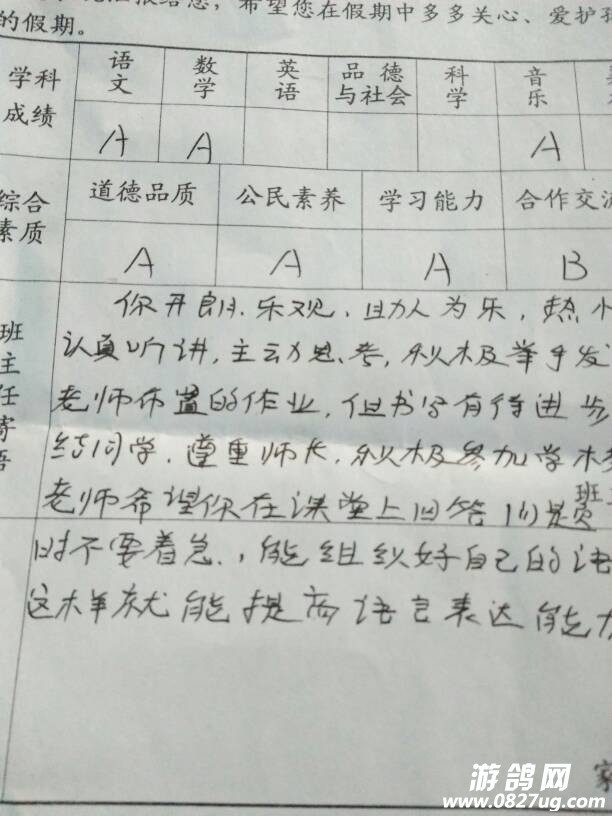 您，希望您在假期中多多关心、爱护孩
的假期。
学科成绩 语文 数学 英语 品德与社会 科学 音乐
A A A
综合素质 道德品质 公民素养 学习能力 合作交流
A A A B
班主任寄语
你开朗、乐观、助人为乐，热
认真听讲，主动思考，积极举手发
老师布置的作业，但书写有待进步
结同学，遵重师长，积极参加学校
老师希望你在课堂上回答问题
班
时不要着急，能组织好自己的语
这样就能提高语言表达能力
家
游鸽网
www.0827ug.com